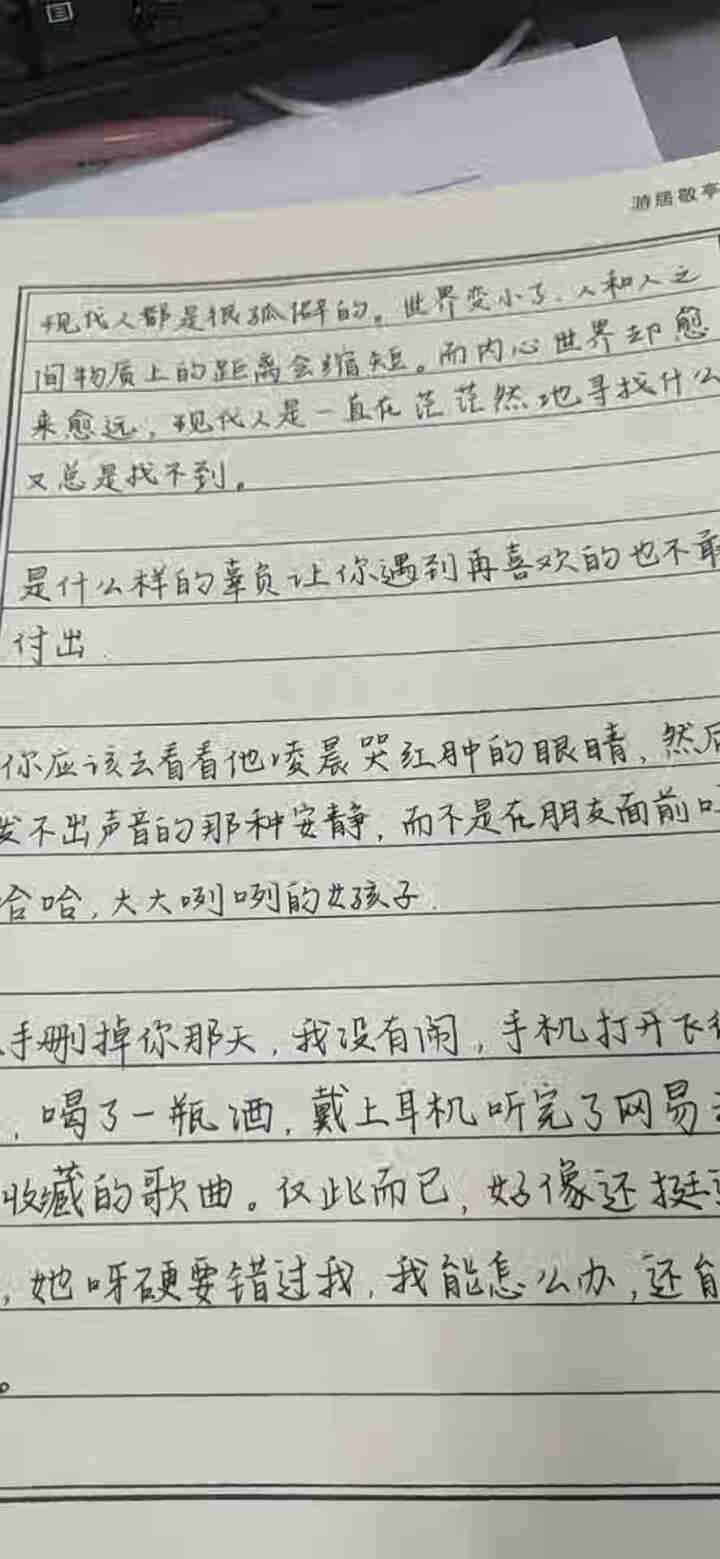 游居敬亭
现代人都是很孤僻的。世界变小了、人和人之
间物质上的距离会缩短。而内心世界却愈
来愈远，现代人是一直在茫茫然地寻找什么
又总是找不到。
是什么样的辜负让你遇到再喜欢的也不敢
付出.
你应该去看看他凌晨哭红肿的眼睛，然后
发不出声音的那种安静，而不是在朋友面前
哈哈，大大咧咧的女孩子.
手删掉你那天，我没有闹，手机打开飞
，喝了一瓶酒，戴上耳机听完了网易
收藏的歌曲。仅此而已，好像还挺
，她呀硬要错过我，我能怎么办，还能
。